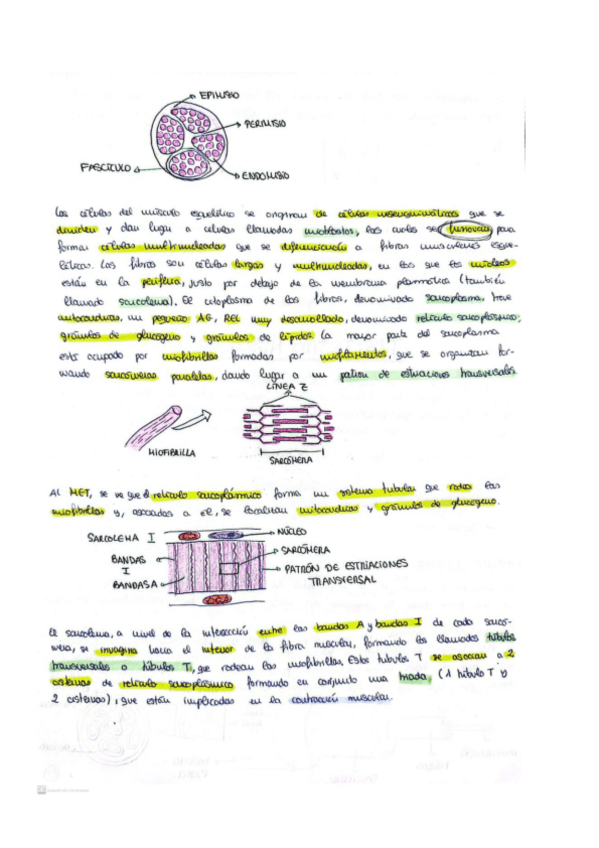 EPIMISIO
PERIMISIO
FASCÍCULO
ENDOMISIO
Las células del músculo esquelético se originan de células mesenquimáticas que se
dividen y dan lugar a células llamadas mioblastos, las cuales se fusionan para
formar células multinucleadas que se diferenciarán a fibras musculares esque-
léticas. Las fibras son células largas y multinucleadas, en las que los núcleos
están en la periferia, justo por debajo de la membrana plasmática (también
llamado sarcolema). El citoplasma de las fibras, denominado sarcoplasma, tiene
mitocondrias, un pequeño AG, REL muy desarrollado, denominado retículo sarcoplásmico,
gránulos de glucógeno y gránulos de lípidos. La mayor parte del sarcoplasma
está ocupado por miofibrillas formadas por miofilamentos, que se organizan for-
mando sarcómeras paralelas, dando lugar a un patrón de estriaciones transversales
LÍNEA Z
MIOFIBRILLA
SARCÓMERA
Al MET, se ve que el retículo sarcoplásmico forma un sistema tubular que rodea las
miofibrillas y, asociadas a él, se localizan mitocondrias y gránulos de glucógeno.
SARCOLEMA I
NÚCLEO
SARCÓMERA
BANDAS
I
PATRÓN DE ESTRIACIONES
TRANSVERSAL
BANDAS A
El sarcolema, a nivel de la intersección entre las bandas A y bandas I de cada sarcó-
mera, se invagina hacia el interior de la fibra muscular, formando los llamados túbulos
transversales o túbulos T, que rodean las miofibrillas. Estos túbulos T se asocian a 2
cisternas de retículo sarcoplásmico formando en conjunto una triada, (1 túbulo T y
2 cisternas), que están implicadas en la contracción muscular.